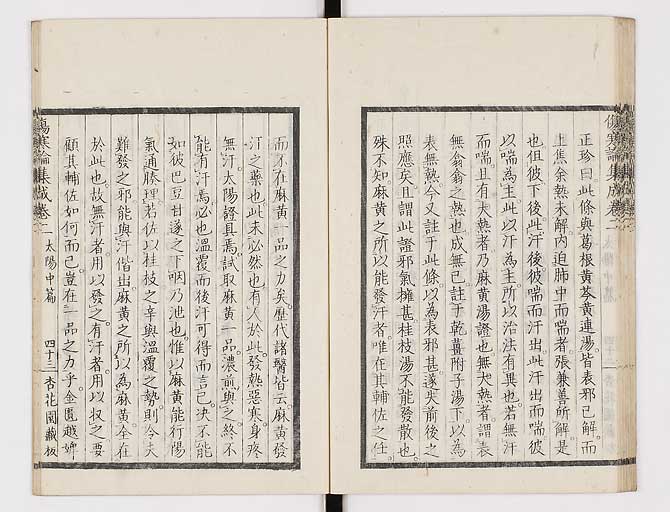 正珍曰此條與葛根黄芩黄連湯皆表邪已解而
上焦餘熱未解內迫肺中而喘者張兼善所解是
也但彼下後此汗後彼喘而汗出此汗出而喘彼
以喘為主此以汗為主所以治法有異也若無汗
而喘且有大熱者乃麻黄湯證也無大熱者謂表
無翕翕之熱也成無已註于乾薑附子湯下以為
表無熱今又註于此條以為表邪甚遂失前後之
照應矣且謂此證邪氣擁甚桂枝湯不能發散也
殊不知麻黄之所以能發汗者唯在其輔佐之任
而不在麻黄一品之力矣歷代諸醫皆云麻黄發
汗之藥也此未必然也有人於此發熱惡寒身疼
無汗太陽證具焉試取麻黄一品濃煎與之終不
能有汗焉必也溫覆而後汗可得而言已决不能
如彼巴豆甘遂之下咽乃泄也惟以麻黄能行陽
氣通腠理若佐以桂枝之辛與溫覆之勢則令夫
難發之邪能與汗偕出麻黄之所以為麻黄全在
於此也故無汗者用以發之有汗者用以收之要
顧其輔佐如何而已豈在一品之力乎金匱越婢
傷寒論集成卷二 太陽中篇 四十三 杏花園藏板